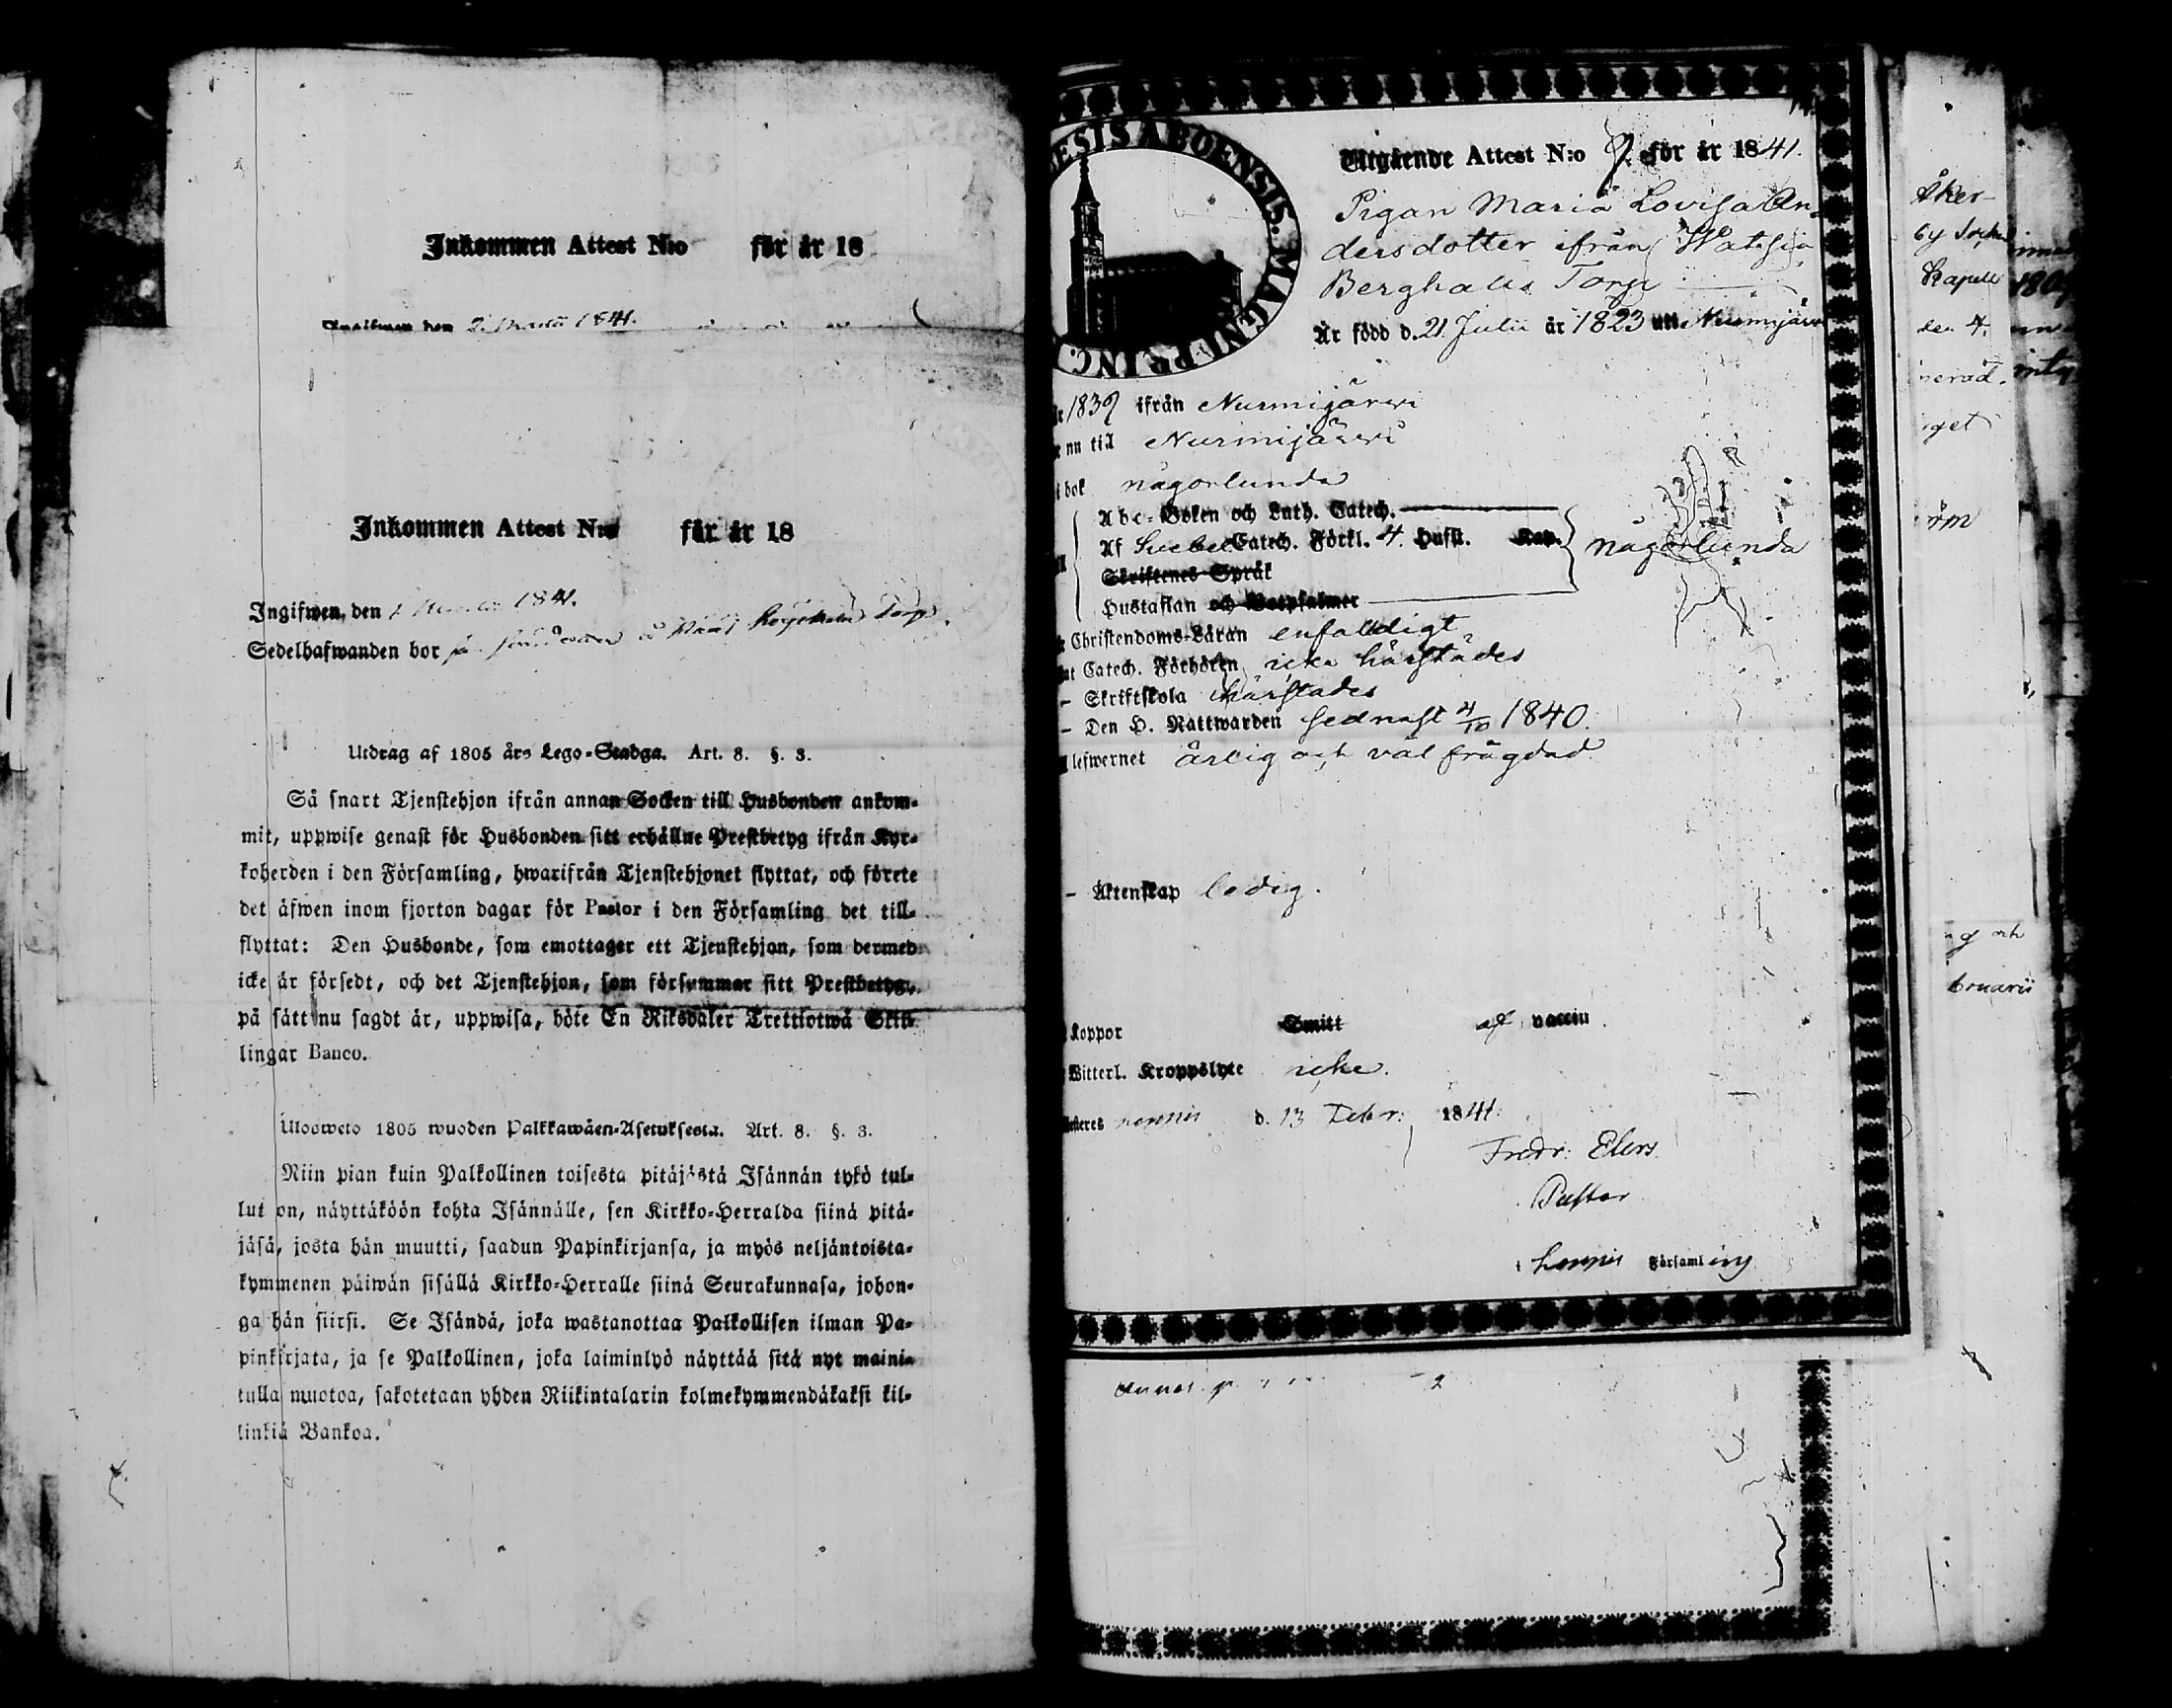 Inkommen Attest N:o för år 18
Ingifwen den 2. Martii 1841.
Inkommen Attest N:o för år 18
Ingifwen den 1841.
Sedelhafwanden bor Torp.
Utdrag af 1805 års Lego-Stadga. Art. 8. §. 3.
Så snart Tjenstehjon ifrån annan Socken till Husbonden ankom-
mit, uppwise genast för Husbonden sitt erhållne Prestbetyg ifrån Kyr-
koherden i den Församling, hwarifrån Tjenstehjonet flyttat, och förete
det äfwen inom fjorton dagar för Pastor i den Församling det till-
flyttat: Den Husbonde, som emottager ett Tjenstehjon, som dermed
icke är försedt, och det Tjenstehjon, som försummar sitt Prestbetyg,
på sätt nu sagdt är, uppwisa, böte En Riksdaler Trettiotwå Skil-
lingar Banco.
Ulosweto 1805 wuoden Palkkawäen-Asetuksesta. Art. 8. §. 3.
Niin pian kuin Palkollinen toisesta pitäjästä Isännän tykö tul-
lut on, näyttäköön kohta Isännälle, sen Kirkko-Herralda siinä pitä-
jäsä, josta hän muutti, saadun Papinkirjansa, ja myös neljäntoista-
kymmenen päiwän sisällä Kirkko-Herralle siinä Seurakunnasa, johon-
ga hän siirsi. Se Isändä, joka wastanottaa Palkollisen ilman Pa-
pinkirjata, ja se Palkollinen, joka laiminlyö näyttää sitä nyt maini-
tulla muotoa, sakotetaan yhden Riikintalarin kolmekymmendäkaksi kil-
linkiä Bankoa.
ESIS ABOENSIS. MAGNI PRINC.
Utgående Attest N:o 9. för år 1841.
Pigan Maria Lovisa An-
dersdotter ifrån Watsia
Berghälls Torp
Är född d. 21 Julii år 1823 uti Nurmijärvi
år 1839 ifrån Nurmijärvi
nu till Nurmijärvi
i bok någorlunda
Abc-Boken och Luth. Catech.
Af Svebel Catech. Förkl. 4. Hufst. Kap. någorlunda
Skriftenes Språk
Hustaflan och Botpsalmer
Christendoms-Läran enfaldigt
Catech. Förhören icke härstädes
– Skriftskola härstädes
– Den H. Nattwarden sednast 4/10 1840.
lefwernet ärlig och väl frägdad
– Äktenskap ledig.
Koppor Smitt af vaccin.
Witterl. Kroppslyte icke.
d. 13 Febr: 1841.
Fredr: Elers
Pastor
i Församling
Åker-
by
Kapell
den 4.
get
öm
g och
bruarii